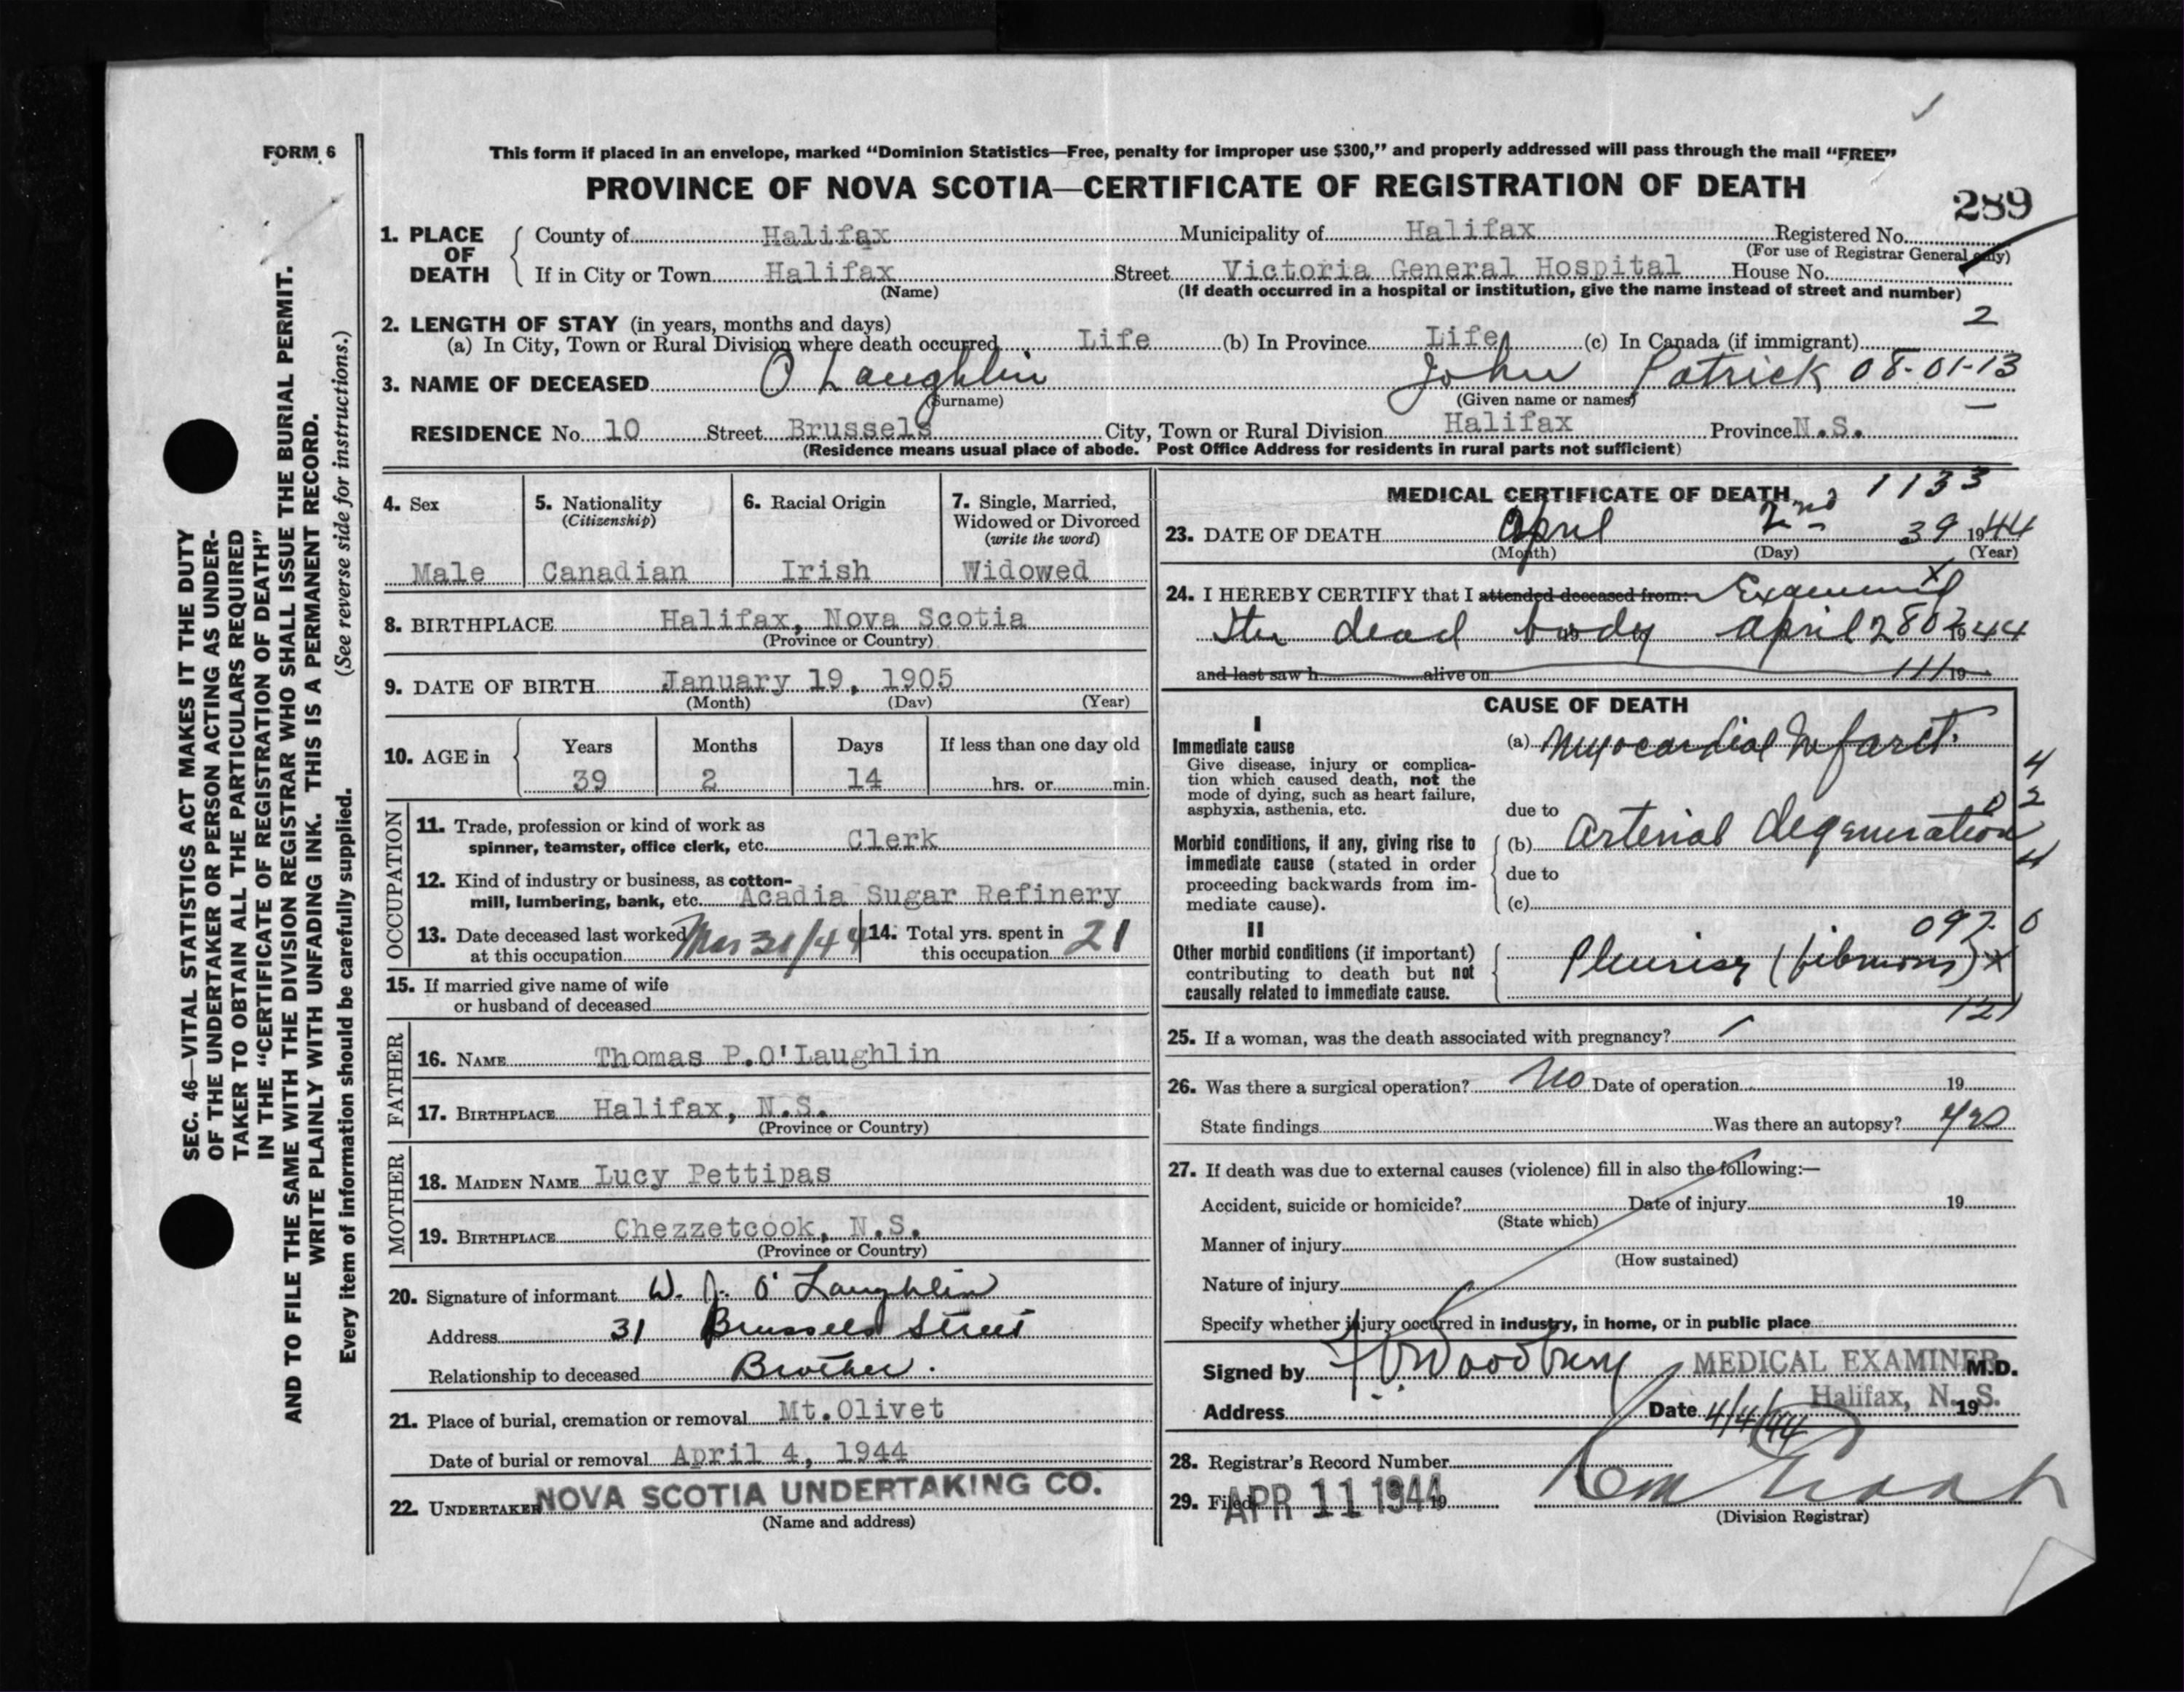 FORM 6
This form if placed in an envelope, marked “Dominion Statistics—Free, penalty for improper use $300,” and properly addressed will pass through the mail “FREE”
PROVINCE OF NOVA SCOTIA—CERTIFICATE OF REGISTRATION OF DEATH
289
SEC. 46—VITAL STATISTICS ACT MAKES IT THE DUTY
OF THE UNDERTAKER OR PERSON ACTING AS UNDER-
TAKER TO OBTAIN ALL THE PARTICULARS REQUIRED
IN THE “CERTIFICATE OF REGISTRATION OF DEATH”
AND TO FILE THE SAME WITH THE DIVISION REGISTRAR WHO SHALL ISSUE THE BURIAL PERMIT.
WRITE PLAINLY WITH UNFADING INK. THIS IS A PERMANENT RECORD.
Every item of information should be carefully supplied. (See reverse side for instructions.)
1. PLACE OF DEATH
County of Halifax Municipality of Halifax Registered No.
(For use of Registrar General only)
If in City or Town Halifax Street Victoria General Hospital House No.
(Name) (If death occurred in a hospital or institution, give the name instead of street and number)
2. LENGTH OF STAY (in years, months and days) 2
(a) In City, Town or Rural Division where death occurred Life (b) In Province Life (c) In Canada (if immigrant)
3. NAME OF DECEASED O'Laughlin John Patrick 08-01-13
(Surname) (Given name or names)
RESIDENCE No. 10 Street Brussels City, Town or Rural Division Halifax Province N.S.
(Residence means usual place of abode. Post Office Address for residents in rural parts not sufficient)
4. Sex 5. Nationality 6. Racial Origin 7. Single, Married,
(Citizenship) Widowed or Divorced
(write the word)
Male Canadian Irish Widowed
8. BIRTHPLACE Halifax, Nova Scotia
(Province or Country)
9. DATE OF BIRTH January 19, 1905
(Month) (Day) (Year)
10. AGE in Years Months Days If less than one day old
39 2 14 hrs. or min.
OCCUPATION
11. Trade, profession or kind of work as
spinner, teamster, office clerk, etc. Clerk
12. Kind of industry or business, as cotton-
mill, lumbering, bank, etc. Acadia Sugar Refinery
13. Date deceased last worked Mar 31/44 14. Total yrs. spent in 21
at this occupation this occupation
15. If married give name of wife
or husband of deceased
FATHER
16. NAME Thomas P.O'Laughlin
17. BIRTHPLACE Halifax, N.S.
(Province or Country)
MOTHER
18. MAIDEN NAME Lucy Pettipas
19. BIRTHPLACE Chezzetcook, N.S.
(Province or Country)
20. Signature of informant W. J. O'Laughlin
Address 31 Brussels Street
Relationship to deceased Brother.
21. Place of burial, cremation or removal Mt.Olivet
Date of burial or removal April 4, 1944
22. UNDERTAKER NOVA SCOTIA UNDERTAKING CO.
(Name and address)
MEDICAL CERTIFICATE OF DEATH 1133
23. DATE OF DEATH April 2nd 39 1944
(Month) (Day) (Year)
24. I HEREBY CERTIFY that I attended deceased from: Examined
the dead body April 2 1944
and last saw h alive on 19
CAUSE OF DEATH
I
Immediate cause (a) Myocardial Infarct.
Give disease, injury or complica-
tion which caused death, not the
mode of dying, such as heart failure,
asphyxia, asthenia, etc. due to
Morbid conditions, if any, giving rise to (b) Arterial degeneration
immediate cause (stated in order
proceeding backwards from im- due to
mediate cause). (c)
II
Other morbid conditions (if important) Pleurisy (fibrinous)
contributing to death but not
causally related to immediate cause.
121
25. If a woman, was the death associated with pregnancy?
26. Was there a surgical operation? No Date of operation 19
State findings Was there an autopsy? Yes
27. If death was due to external causes (violence) fill in also the following:—
Accident, suicide or homicide? Date of injury 19
(State which)
Manner of injury
(How sustained)
Nature of injury
Specify whether injury occurred in industry, in home, or in public place
Signed by Woodbury MEDICAL EXAMINER M.D.
Halifax, N. S.
Address Date 4/4/44 19
28. Registrar's Record Number
29. Filed APR 11 1944 19
(Division Registrar)